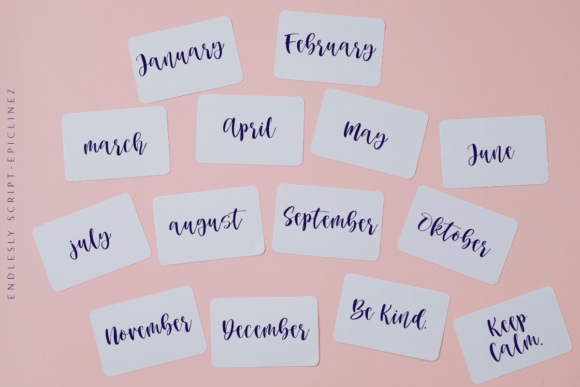 January
February
march
April
May
June
july
august
September
Oktober
November
December
Be Kind.
Keep
Calm.
ENDLESLY SCRIPT-EPICLINEZ